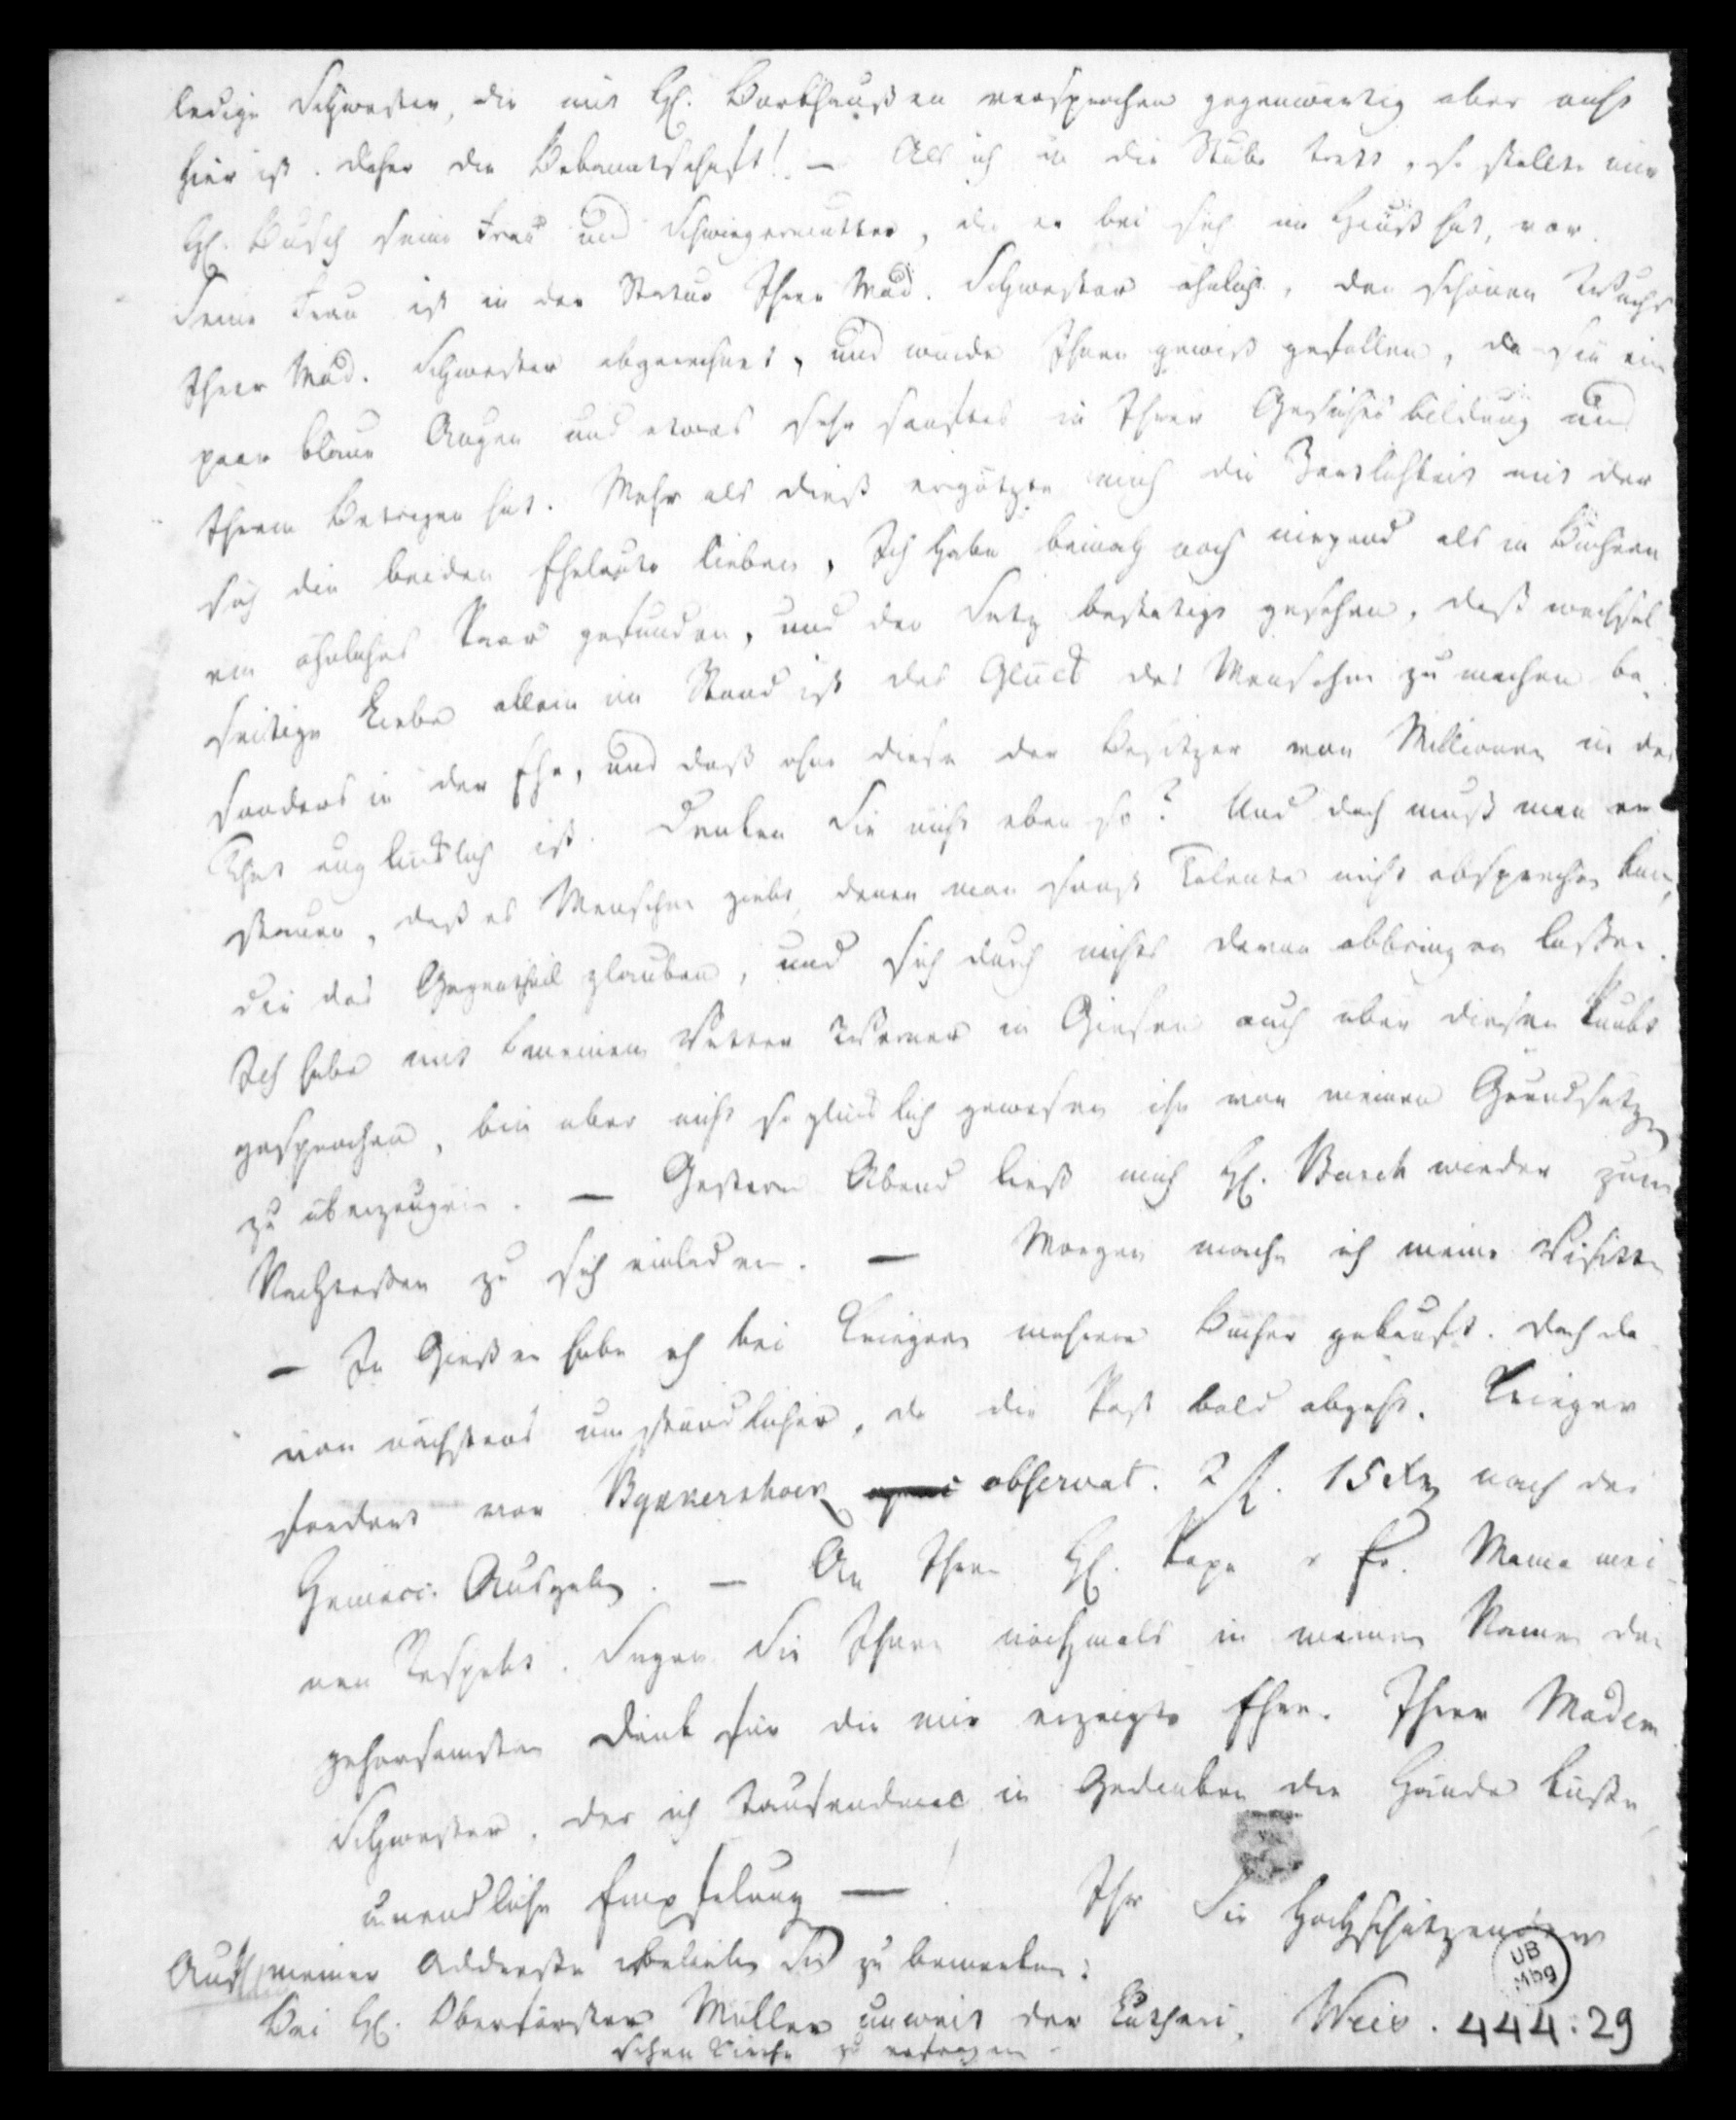 ledige Schwester, die mit H. Borkhaußen versprochen gegenwärtig aber nicht
hier ist. Daher die Bekanntschaft! — Als ich in die Stube trat, so stellte mir
H. Busch seine Frau und Schwiegermutter, die er bei sich im Hauß hat, vor.
Seine Frau ist in der Statur Ihrer Mad. Schwester ähnlich, den schönen Wuchs
Ihrer Mad. Schwester abgerechnet, und würde Ihnen gewiß gefallen, da sie ein
paar blaue Augen und etwas sehr sanftes in Ihrer Gesichtsbildung und
Ihrem Betragen hat. Mehr als dieß ergötzte mich die Zärtlichkeit mit der
sich die beiden Eheleute lieben, Ich habe beinah noch nirgend als in Büchern
ein ähnliches Paar gefunden, und den Satz bestätigt gesehen, daß wechsel-
seitige Liebe allein im Stand ist das Glück des Menschen zu machen be-
sonders in der Ehe, und daß ohne diese der Besitzer von Millionen in der
That unglücklich ist. Denken Sie nicht eben so? Und doch muß man er-
staunen, daß es Menschen giebt, denen man sonst Talente nicht absprechen kan,
die das Gegentheil glauben, und sich durch nichts davon abbringen lassen.
Ich habe mit meinem Vetter Werner in Giesen auch über diesen Punkt
gesprochen, bin aber nicht so glücklich gewesen ihn von meinen Grundsätzen
zu überzeugen. — Gestern Abend ließ mich H. Busch wieder zum
Nachtessen zu sich einladen. — Morgen mache ich meine Visiten
— In Gießen habe ich bei Kriegern mehrere Bücher gekauft. Doch da-
von nächstens umständlicher, da die Post bald abgeht. Krieger
fordert vor Bynkershoek observat. 2 fl. 15 Xr nach der
Ausgabe. — An Ihren H. Papa u Fr. Mama mei-
nen Respekt. Sagen Sie Ihnen nochmals in meinem Namen den
gehorsamsten Dank für die mir erzeigte Ehre. Ihrer Madem
Schwester, der ich tausendmal in Gedanken die Hände küsse,
unendliche Empfelung —
Ihr Sie Hochschätzender
Auf meiner Addresse belieben Sie zu bemerken:
Bei H. Oberförster Müller unweit der Lutheri- Weis. 444:29
schen Kirche zu erfragen.
UB
Mbg